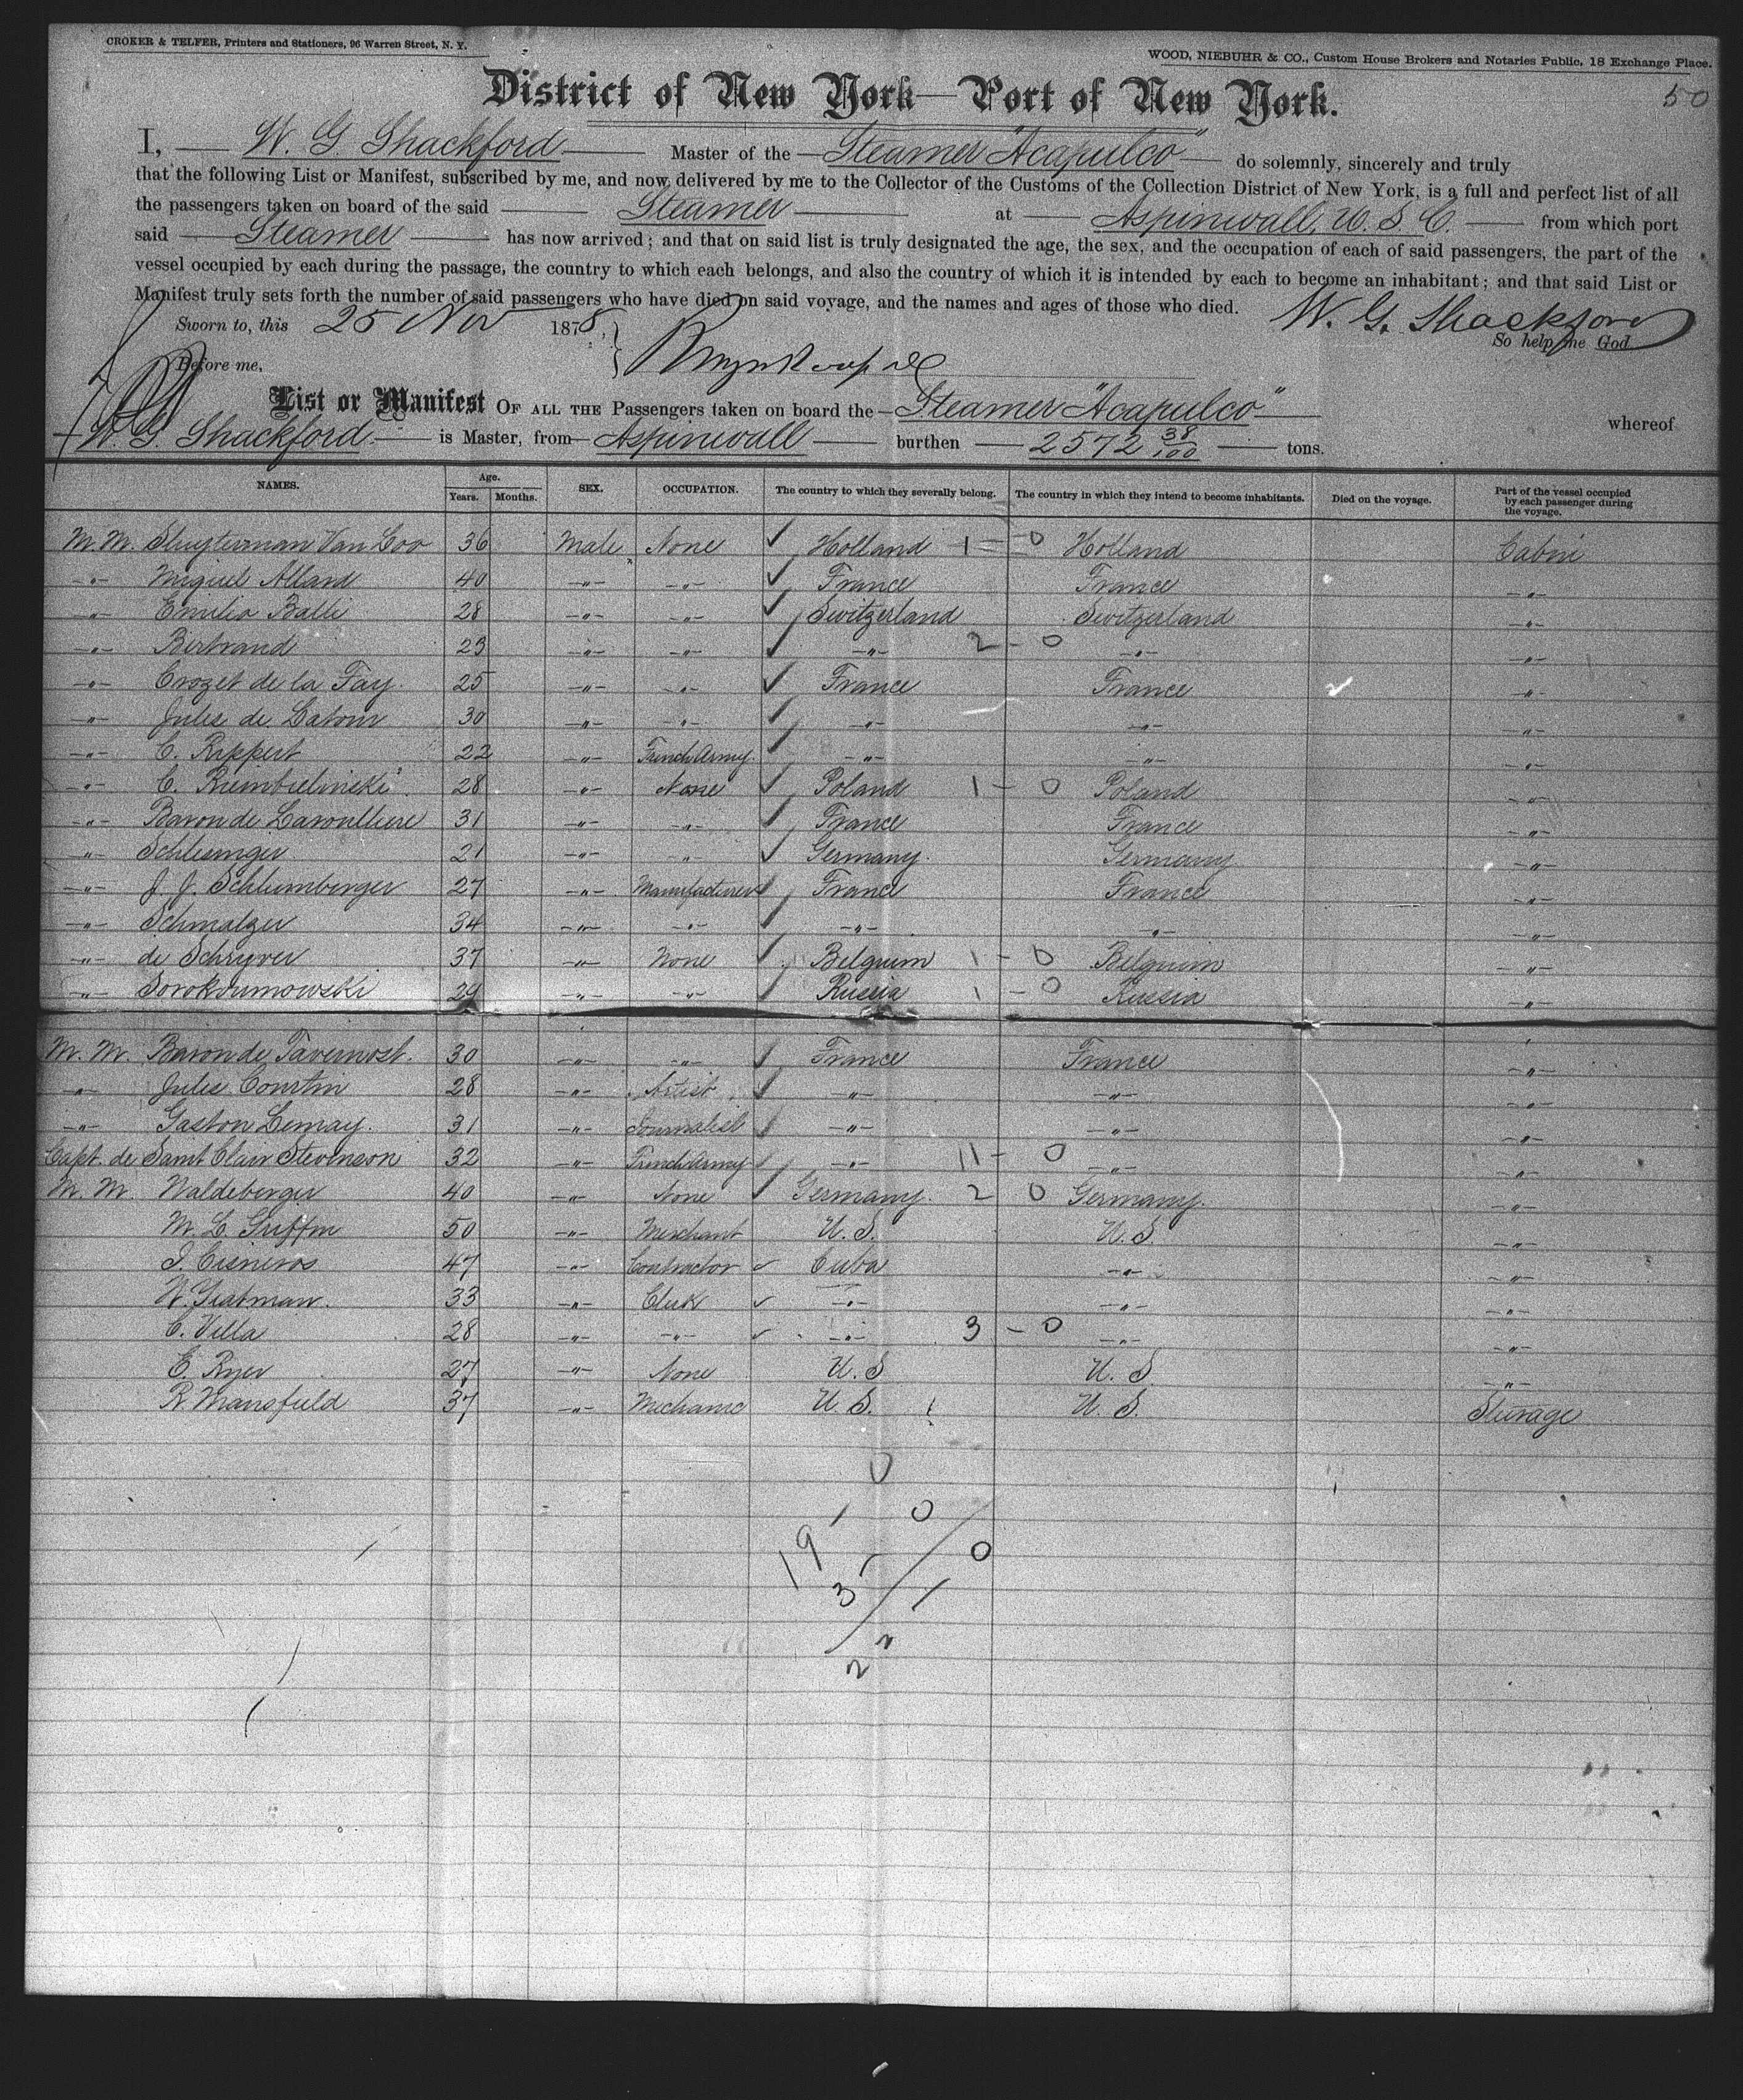 CROKER & TELFER, Printers and Stationers, 96 Warren Street, N. Y.
WOOD, NIEBUHR & CO., Custom House Brokers and Notaries Public, 18 Exchange Place.
50
District of New York—Port of New York.
I, W. G. Shackford Master of the Steamer "Acapulco" do solemnly, sincerely and truly
that the following List or Manifest, subscribed by me, and now delivered by me to the Collector of the Customs of the Collection District of New York, is a full and perfect list of all
the passengers taken on board of the said Steamer at Aspinwall, U. S. C. from which port
said Steamer has now arrived; and that on said list is truly designated the age, the sex, and the occupation of each of said passengers, the part of the
vessel occupied by each during the passage, the country to which each belongs, and also the country of which it is intended by each to become an inhabitant; and that said List or
Manifest truly sets forth the number of said passengers who have died on said voyage, and the names and ages of those who died.
W. G. Shackford
Sworn to, this 25 Nov 1878.
So help me God
Before me,
List or Manifest OF ALL THE Passengers taken on board the Steamer "Acapulco" whereof
W. G. Shackford is Master, from Aspinwall burthen 2572 38/100 tons.
NAMES. Age. Years. Months. SEX. OCCUPATION. The country to which they severally belong. The country in which they intend to become inhabitants. Died on the voyage. Part of the vessel occupied by each passenger during the voyage.
M. M. Sluyterman Van Loo 36 Male None ✓ Holland 1 - 0 Holland Cabin
-"- Miguel Allard 40 -"- -"- ✓ France France -"-
-"- Emilio Balli 28 -"- -"- ✓ Switzerland Switzerland -"-
-"- Bertrand 23 -"- -"- ✓ -"- 2 - 0 -"- -"-
-"- Crozet de la Fay. 25 -"- -"- ✓ France France -"-
-"- Jules de Latour 30 -"- -"- ✓ -"- -"- -"-
-"- C. Rippert 22 -"- French Army ✓ -"- -"- -"-
-"- C. 28 -"- None ✓ Poland 1 - 0 Poland -"-
-"- Baron de 31 -"- -"- ✓ France France -"-
-"- Schlesinger 21 -"- -"- ✓ Germany. Germany -"-
-"- J. J. Schlumberger 27 -"- Manufacturer ✓ France France -"-
-"- Schmalzer 34 -"- -"- ✓ -"- -"- -"-
-"- de Schryver 37 -"- None ✓ Belgium 1 - 0 Belgium -"-
-"- 29 -"- -"- ✓ Russia 1 - 0 Russia -"-
M. M. Baron de Tavernost. 30 -"- -"- ✓ France France -"-
-"- Jules Courtin 28 -"- Artist ✓ -"- -"- -"-
-"- Gaston Lemay. 31 -"- Journalist ✓ -"- -"- -"-
Capt. de Saint Clair Stevenson 32 -"- French Army ✓ -"- 11 - 0 -"- -"-
M. M. Waldeberger 40 -"- None ✓ Germany. 2 0 Germany. -"-
M. L. Griffin 50 -"- Merchant U. S. U. S. -"-
I. Cisneros 47 -"- Contractor ✓ Cuba -"- -"-
W. Yeatman. 33 -"- Clerk ✓ -"- -"- -"-
C. Villa 28 -"- -"- ✓ -"- 3 - 0 -"- -"-
E. Ryer 27 -"- None U. S U. S -"-
R. Mansfield 37 -"- Mechanic U. S. U. S. Steerage
0
0
19
0
3
1
22